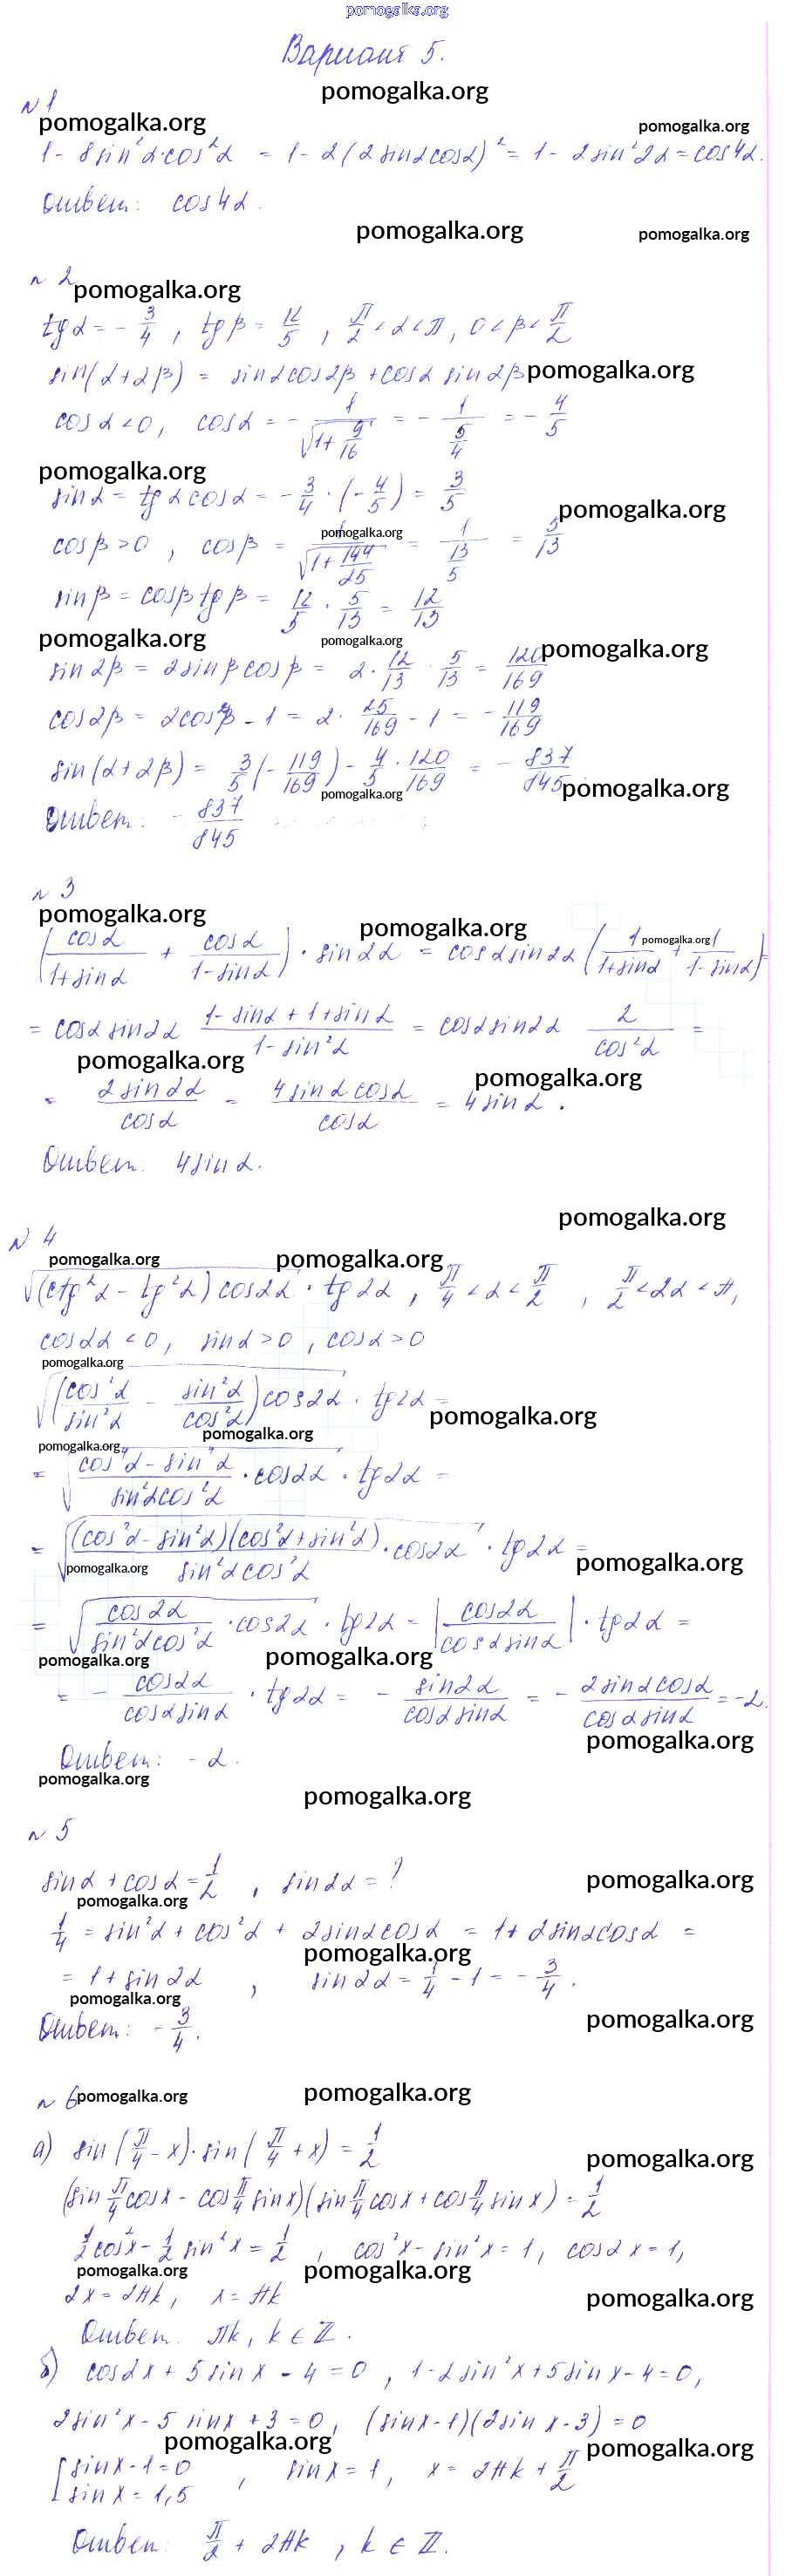 pomogalka.org
Вариант 5.
pomogalka.org
№ 1
pomogalka.org pomogalka.org
1 - 8sin²α·cos²α = 1 - 2(2sinαcosα)² = 1 - 2sin²2α = cos4α.
Ответ: cos4α.
pomogalka.org pomogalka.org
№ 2
pomogalka.org
tgα = -3/4, tgβ = 12/5, π/2 < α < π, 0 < β < π/2
sin(α+2β) = sinαcos2β + cosα sin2β pomogalka.org
cosα < 0, cosα = -1/√(1+9/16) = -1/(5/4) = -4/5
pomogalka.org
sinα = tgαcosα = -3/4·(-4/5) = 3/5
pomogalka.org
cosβ > 0, cosβ = 1/√(1+144/25) = 1/(13/5) = 5/13
pomogalka.org
sinβ = cosβtgβ = 12/5·5/13 = 12/13
pomogalka.org pomogalka.org pomogalka.org
sin2β = 2sinβcosβ = 2·12/13·5/13 = 120/169
cos2β = 2cos²β - 1 = 2·25/169 - 1 = -119/169
sin(α+2β) = 3/5(-119/169) - 4/5·120/169 = -837/845
pomogalka.org pomogalka.org
Ответ: -837/845
№ 3
pomogalka.org pomogalka.org pomogalka.org
(cosα/(1+sinα) + cosα/(1-sinα))·sin2α = cosαsin2α(1/(1+sinα) + 1/(1-sinα)) =
= cosαsin2α (1-sinα+1+sinα)/(1-sin²α) = cosαsin2α 2/cos²α =
pomogalka.org pomogalka.org
= 2sin2α/cosα = 4sinαcosα/cosα = 4sinα.
Ответ: 4sinα.
pomogalka.org
№ 4
pomogalka.org pomogalka.org
√((ctg²α - tg²α)cos2α)·tg2α, π/4 < α < π/2, π/2 < 2α < π,
cos2α < 0, sinα > 0, cosα > 0
pomogalka.org
√((cos²α/sin²α - sin²α/cos²α)cos2α)·tg2α =
pomogalka.org pomogalka.org pomogalka.org
= √((cos⁴α - sin⁴α)/(sin²αcos²α)·cos2α)·tg2α =
= √((cos²α - sin²α)(cos²α + sin²α)/(sin²αcos²α)·cos2α)·tg2α =
pomogalka.org pomogalka.org
= √(cos2α/(sin²αcos²α)·cos2α)·tg2α = |cos2α/(cosαsinα)|·tg2α =
pomogalka.org pomogalka.org
= -cos2α/(cosαsinα)·tg2α = -sin2α/(cosαsinα) = -2sinαcosα/(cosαsinα) = -2.
pomogalka.org
Ответ: -2.
pomogalka.org
pomogalka.org
№ 5
sinα + cosα = 1/2, sin2α = ?
pomogalka.org pomogalka.org
1/4 = sin²α + cos²α + 2sinαcosα = 1 + 2sinαcosα =
pomogalka.org
= 1 + sin2α, sin2α = 1/4 - 1 = -3/4.
pomogalka.org pomogalka.org
Ответ: -3/4.
№ 6 pomogalka.org pomogalka.org
а) sin(π/4 - x)·sin(π/4 + x) = 1/2
pomogalka.org
(sin π/4 cosx - cos π/4 sinx)(sin π/4 cosx + cos π/4 sinx) = 1/2
1/2cos²x - 1/2 sin²x = 1/2, cos²x - sin²x = 1, cos2x = 1,
pomogalka.org pomogalka.org pomogalka.org
2x = 2πk, x = πk
Ответ. πk, k ∈ Z.
б) cos2x + 5sinx - 4 = 0, 1 - 2sin²x + 5sinx - 4 = 0,
2sin²x - 5 sinx + 3 = 0, (sinx - 1)(2sinx - 3) = 0
pomogalka.org pomogalka.org
[sinx - 1 = 0
sinx = 1,5, sinx = 1, x = 2πk + π/2
Ответ: π/2 + 2πk, k ∈ Z.